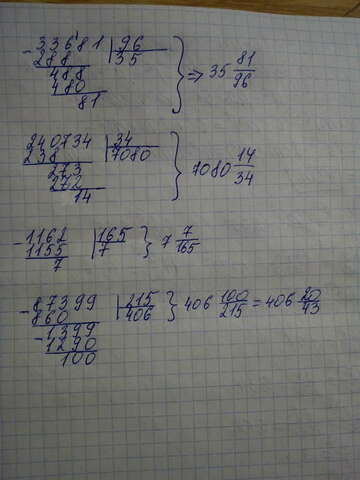 - 33681 | 96
288 35
488 } => 35 81/96
480
81
240734 | 34
238 7080
273 } 7080 14/34
272
14
- 1162 | 165 } 7 7/165
1155 7
7
- 87399 | 215 } 406 100/215 = 406 20/43
860 406
- 1399
1290
100